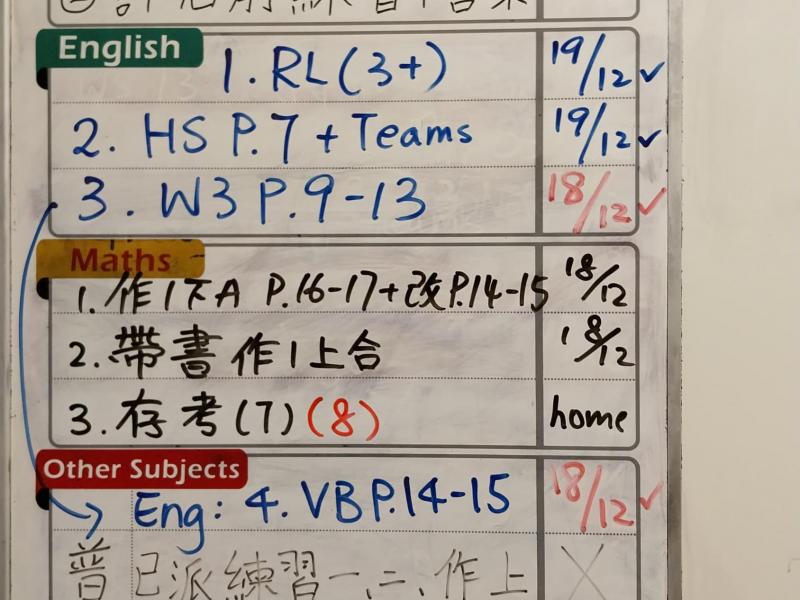 English
1. RL (3+) 19/12 ✓
2. HS P.7 + Teams 19/12 ✓
3. W3 P.9-13 18/12 ✓
Maths
1. 作1下A P.16-17+改P.14-15 18/12
2. 帶書作1上合 18/12
3. 存考(7)(8) home
Other Subjects
Eng: 4. VB P.14-15 18/12 ✓
普 已派練習一、二、作上 X